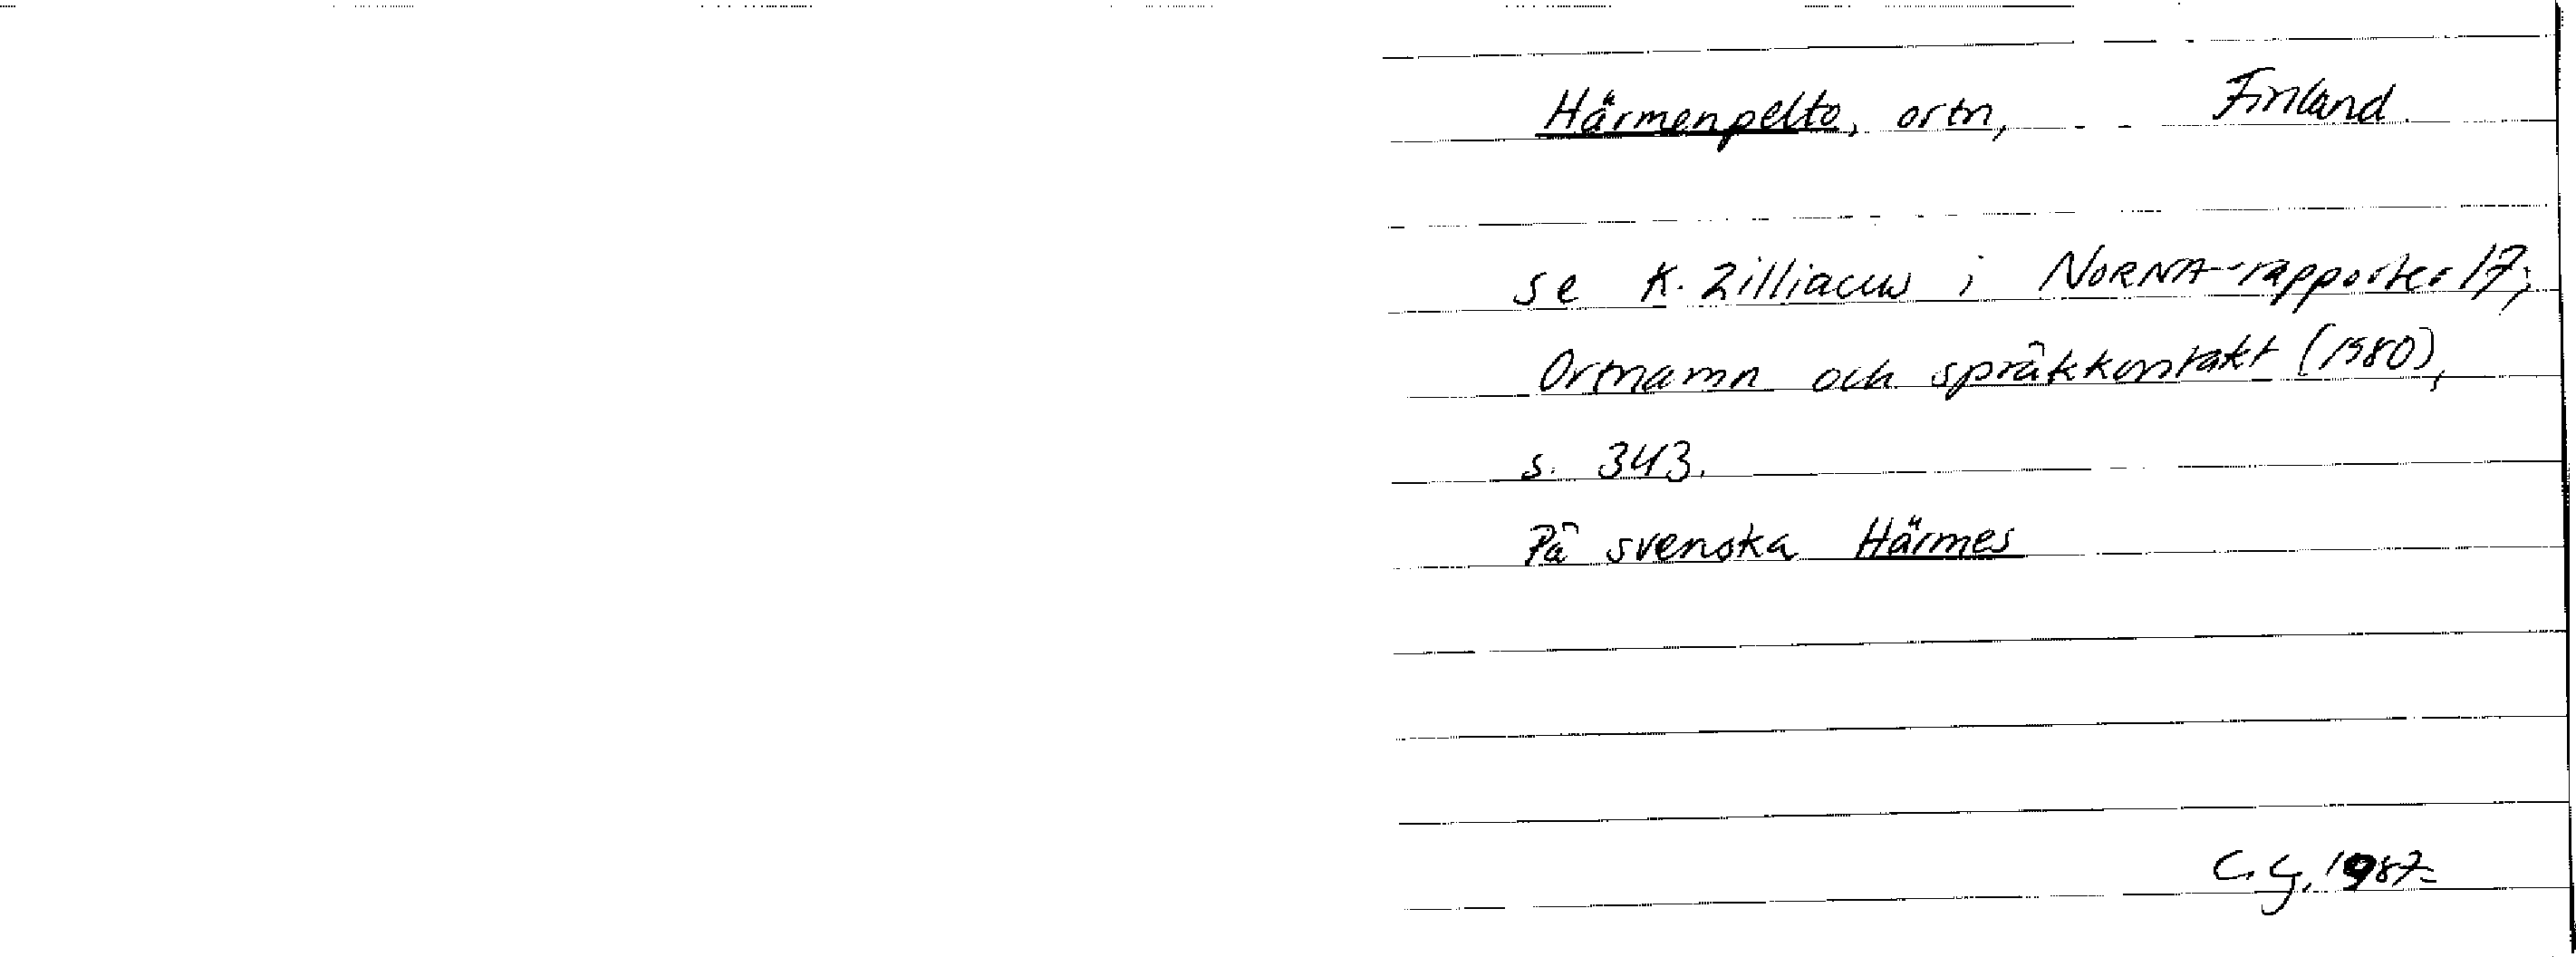 Härmenpelto, ortn, Finland.
se K. Zilliacus i NORNA-rapporter 17;
Ortnamn och språkkontakt (1980),
s. 343.
På svenska Härmes
C. G. 1987